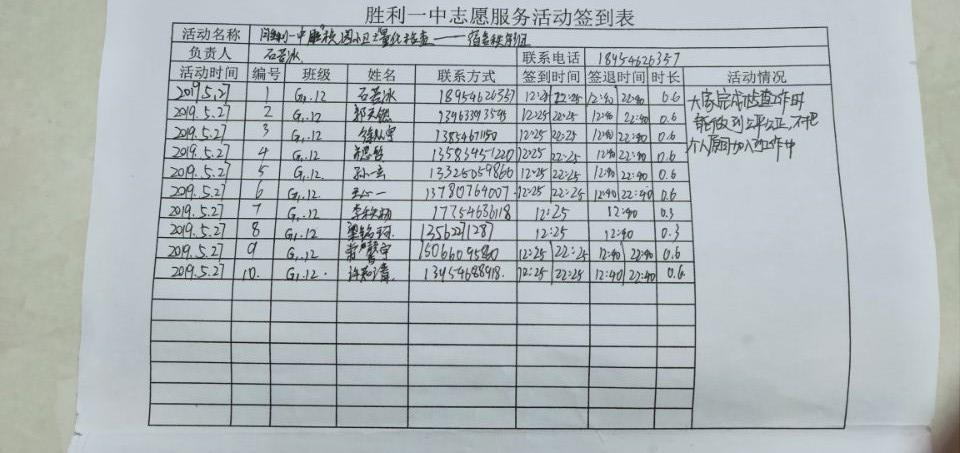 胜利一中志愿服务活动签到表
活动名称 检查——宿舍
负责人 石芸冰 联系电话 18954626357
活动时间 编号 班级 姓名 联系方式 签到时间 签退时间 时长 活动情况
2019.5.27 1 G1.12 石芸冰 18954626357 12:25 22:25 12:40 22:40 0.6 大家完成检查工作时
2019.5.27 2 G1.12 12:25 22:25 12:40 22:40 0.6 能做到公平公正,不把
2019.5.27 3 G1.12 12:25 22:25 12:40 22:40 0.6 个人原因加入到工作中
2019.5.27 4 G1.12 12:25 22:25 12:40 22:40 0.6
2019.5.27 5 G1.12 13325059866 12:25 22:25 12:40 22:40 0.6
2019.5.27 6 G1.12 13780764007 12:25 22:25 12:40 22:40 0.6
2019.5.27 7 G1.12 17754636118 12:25 12:40 0.3
2019.5.27 8 G1.12 13562271287 12:25 12:40 0.3
2019.5.27 9 G1.12 12:25 22:25 12:40 22:40 0.6
2019.5.27 10. G1.12. 13954688918. 12:25 22:25 12:40 22:40 0.6